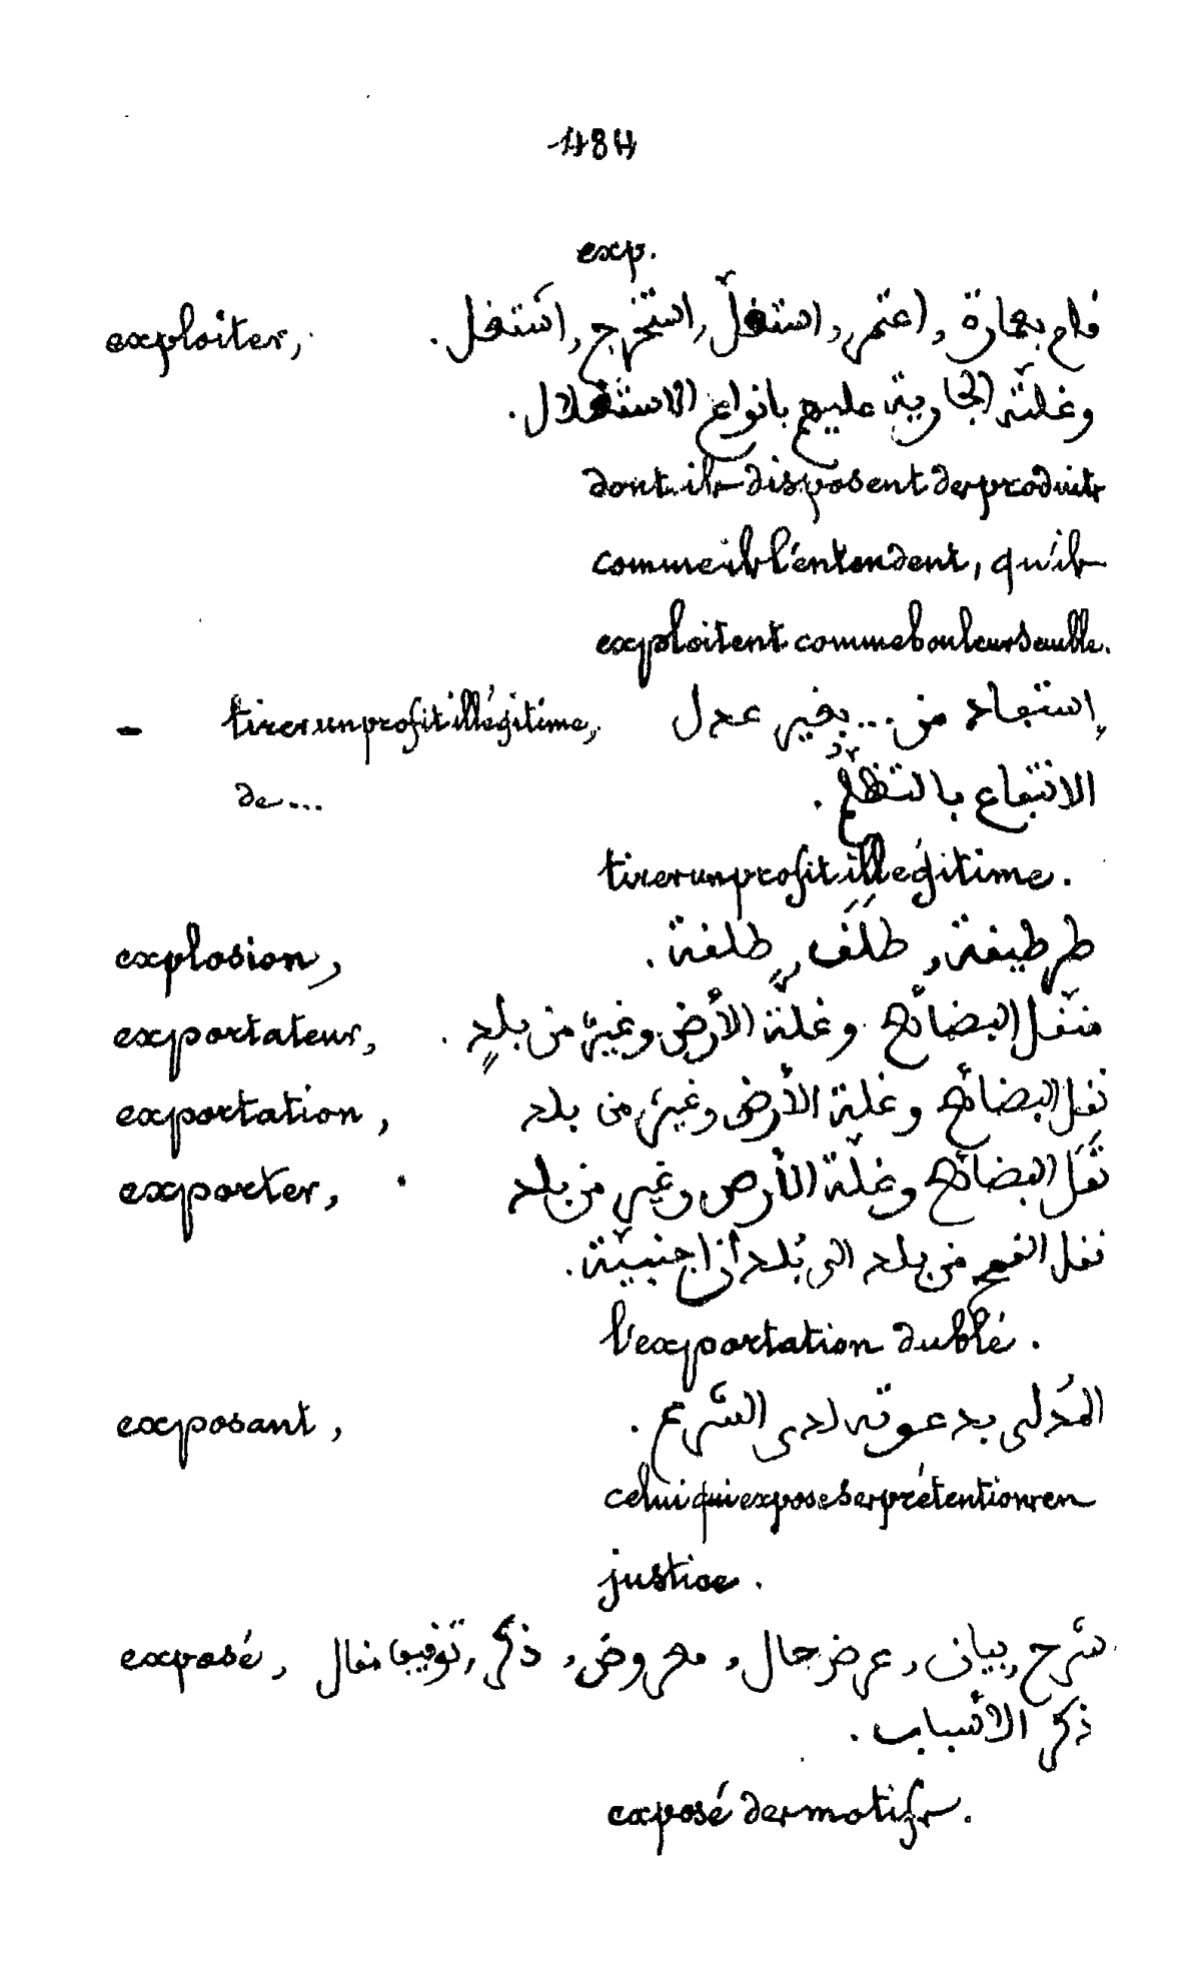 484
exp.
exploiter, قام بعمارة, اعتمر, استغلّ, استخرج, اشتغل.
وغلّته الجارية عليهم بانواع الاستغلال.
dont ils disposent des produits
comme ils l'entendent, qu'ils
exploitent comme bon leur semble.
— tirer un profit illégitime, إستفاد من... بغير عدل
de... الانتفاع بالتظلّم.
tirer un profit illégitime.
explosion, طرطيفة, طَلَق, طلفة.
exportateur, منفّل البضائع وغلّة الأرض وغيره من بلدٍ.
exportation, نفل البضائع وغلة الأرض وغيره من بلد
exporter, نَقَل البضائع وغلّة الأرض وغير من بلد.
نفل القمح من بلد الى بُلدان اجنبيّة.
l'exportation du blé.
exposant, المُدلى بدعوته لدى الشّرع.
celui qui expose ses prétentions en
justice.
exposé, شرح, بيان, عرض حال, معروض, ذكر, توفيف مقال
ذكر الأسباب.
exposé des motifs.